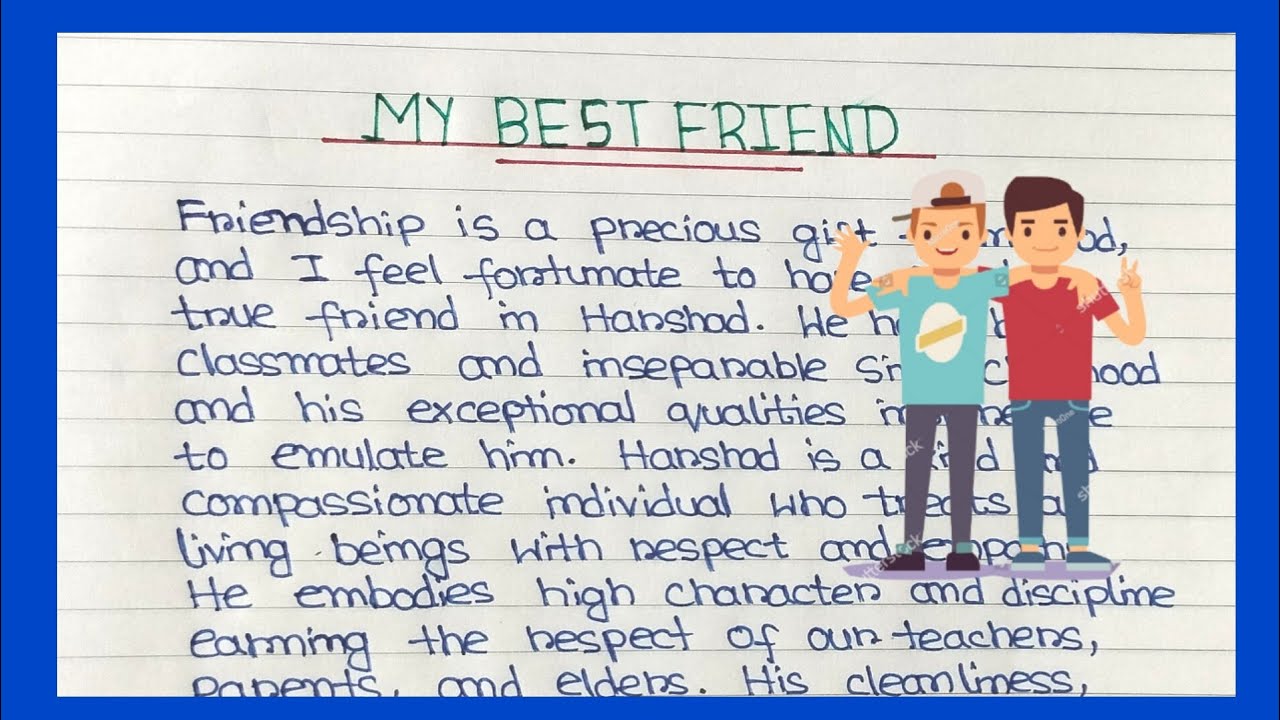 MY BEST FRIEND
Friendship is a precious gift God,
and I feel fortunate to have
true friend in Harshad. He
classmates and inseparable
and his exceptional qualities
to emulate him. Harshad is a
compassionate individual who treats
living beings with respect and
He embodies high character and discipline
earning the respect of our teachers,
parents, and elders. His cleanliness,